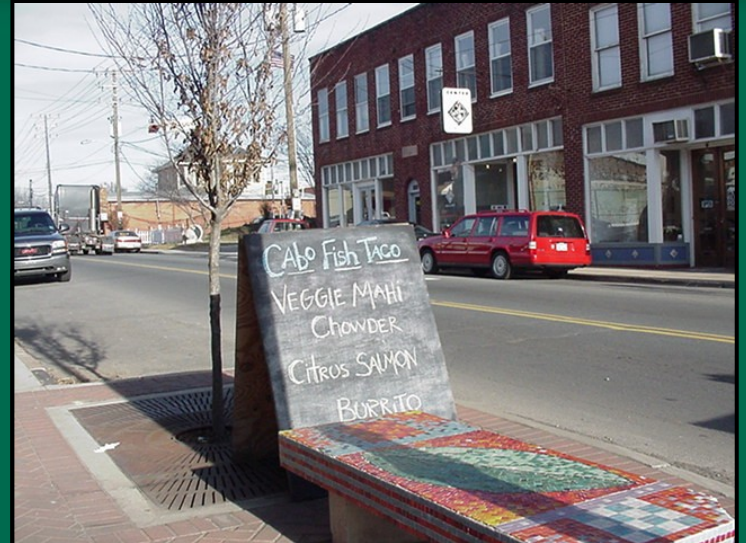 CAbo Fish TACO
VEGGIE MAHI
CHOWDER
CITRUS SALMON
BURRITO
CENTER